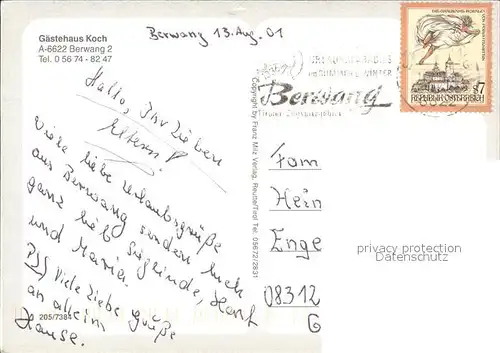 Gästehaus Koch
A-6622 Berwang 2
Tel. 0 56 74 - 82 47
Berwang 13. Aug. 01
Hallo, Ihr Lieben
Eltern!
Viele liebe Urlaubsgrüße
aus Berwang senden Euch
ganz lieb Sieglinde,
und Maria.
PS Viele liebe Grüße
an allein
Hause.
205/7384
Copyright by Franz Milz Verlag, Reutte/Tirol Tel. 05672/2831
URLAUBSPARADIES
IM SOMMER U. WINTER
Berwang
REPUBLIK ÖSTERREICH
S7
Fam
Hein
Enge
08312
G
privacy protection
Datenschutz